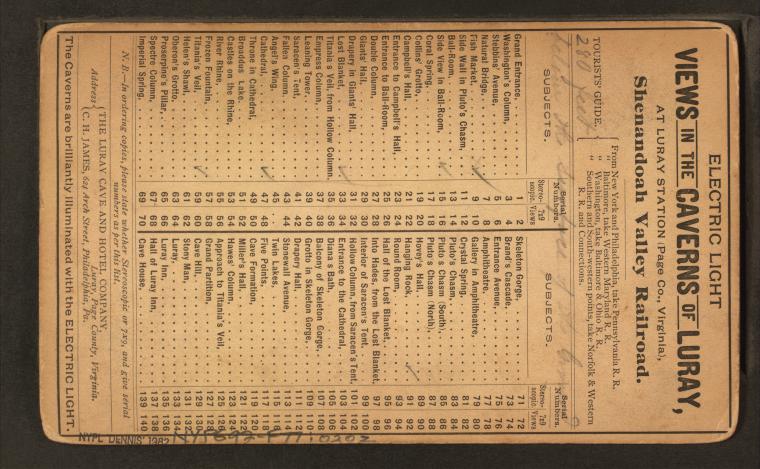 ELECTRIC LIGHT
VIEWS IN THE CAVERNS OF LURAY,
AT LURAY STATION (Page Co., Virginia),
Shenandoah Valley Railroad.
TOURISTS' GUIDE
From New York and Philadelphia, take Pennsylvania R. R.
" Baltimore, take Western Maryland R. R.
" Washington, take Baltimore & Ohio R. R.
" Southern and South-western points, take Norfolk & Western
R. R. and Connections.
SUBJECTS. Serial Numbers. Stereoscopic. 7x9 Views
Grand Entrance, 1 2
Washington's Column, 3 4
Stebbins Avenue, 5 6
Natural Bridge, 7 8
Fish Market, 9 10
Side Wall in Pluto's Chasm, 11 12
Ball-Room, 13 14
Side View in Ball-Room, 15 16
Coral Spring, 17 18
Collins' Grotto, 19 20
Campbell's Hall, 21 22
Entrance to Campbell's Hall, 23 24
Entrance to Ball-Room, 25 26
Double Column, 27 28
Giants' Hall, 29 30
Drapery in Giants' Hall, 31 32
Lost Blanket, 33 34
Titania's Veil, from Hollow Column, 35 36
Empress Column, 37 38
Leaning Tower, 39 40
Saracen's Tent, 41 42
Fallen Column, 43 44
Angel's Wing, 45 46
Cathedral, 47 48
Throne in Cathedral, 49 50
Broaddus Lake, 51 52
Castles on the Rhine, 53 54
River Rhine, 55 56
Frozen Fountain, 57 58
Titania's Veil, 59 60
Helen's Shawl, 61 62
Oberon's Grotto, 63 64
Proserpine's Pillar, 65 66
Spectre Column, 67 68
Imperial Spring, 69 70
SUBJECTS. Serial Numbers. Stereoscopic. 7x9 Views
Skeleton Gorge, 71 72
Brand's Cascade, 73 74
Entrance Avenue, 75 76
Amphitheatre, 77 78
Gallery in Amphitheatre, 79 80
Crystal Spring, 81 82
Pluto's Chasm, 83 84
Pluto's Chasm (South), 85 86
Pluto's Chasm (North), 87 88
Hovey's Hall, 89 90
Hanging Rock, 91 92
Round Room, 93 94
Hall of the Lost Blanket, 95 96
Into Hades, from the Lost Blanket, 97 98
Interior of Saracen's Tent, 99 100
Hollow Column, from Saracen's Tent, 101 102
Entrance to the Cathedral, 103 104
Diana's Bath, 105 106
Balcony of Skeleton Gorge, 107 108
Grotto in Skeleton Gorge, 109 110
Dragon Hall, 111 112
Stonewall Avenue, 113 114
Twin Lakes, 115 116
Five Points, 117 118
Cave Formation, 119 120
Miller's Hall, 121 122
Hawes' Column, 123 124
Approach to Titania's Veil, 125 126
Grand Partition, 127 128
Cave Hill, 129 130
Stony Man, 131 132
Luray, 133 134
Luray Inn, 135 136
Hall of Luray Inn, 137 138
Cave House, 139 140
N. B.—In ordering copies, please state whether Stereoscopic or 7x9, and give serial
numbers as per this list.
Address THE LURAY CAVE AND HOTEL COMPANY,
Luray, Page County, Virginia.
C. H. JAMES, 624 Arch Street, Philadelphia, Pa.
The Caverns are brilliantly illuminated with the ELECTRIC LIGHT.
NYPL DENNIS 1982